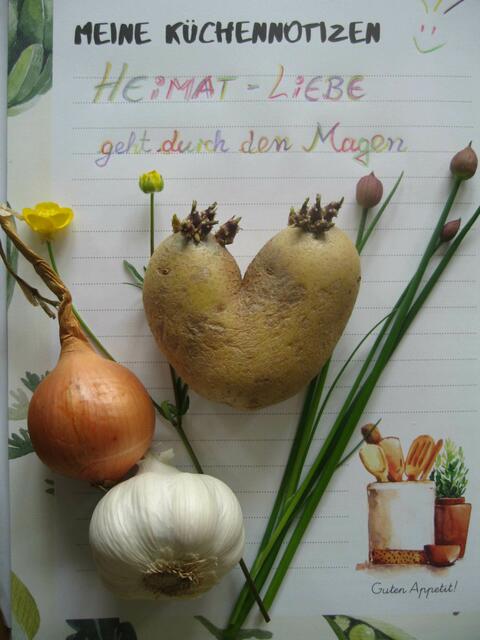 MEINE KÜCHENNOTIZEN
HEIMAT - LIEBE
geht durch den Magen
Guten Appetit!